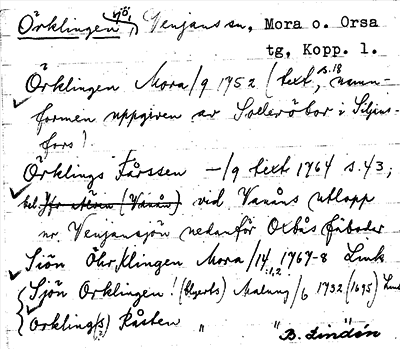 Örklingen, sjö, Venjans sn, Mora o. Orsa
tg, Kopp. l.
Örklingen Mora/9 1752 (text, s.18 namn-
formen uppgiven av Solleröbor i Siljans-
fors)
Örklings Fårssen —/9 text 1764 s. 43;
bel. vid Vanåns utlopp
ur Venjanssjön nedanför Oxbås fäbodar
Siön Öhr,Klingen Mora/14 1767-8 Link
Sjön Orklingen! (Hyerts) Malung/6 1732 (1695)
Orkling(s) Råsten " "
B. Lindén